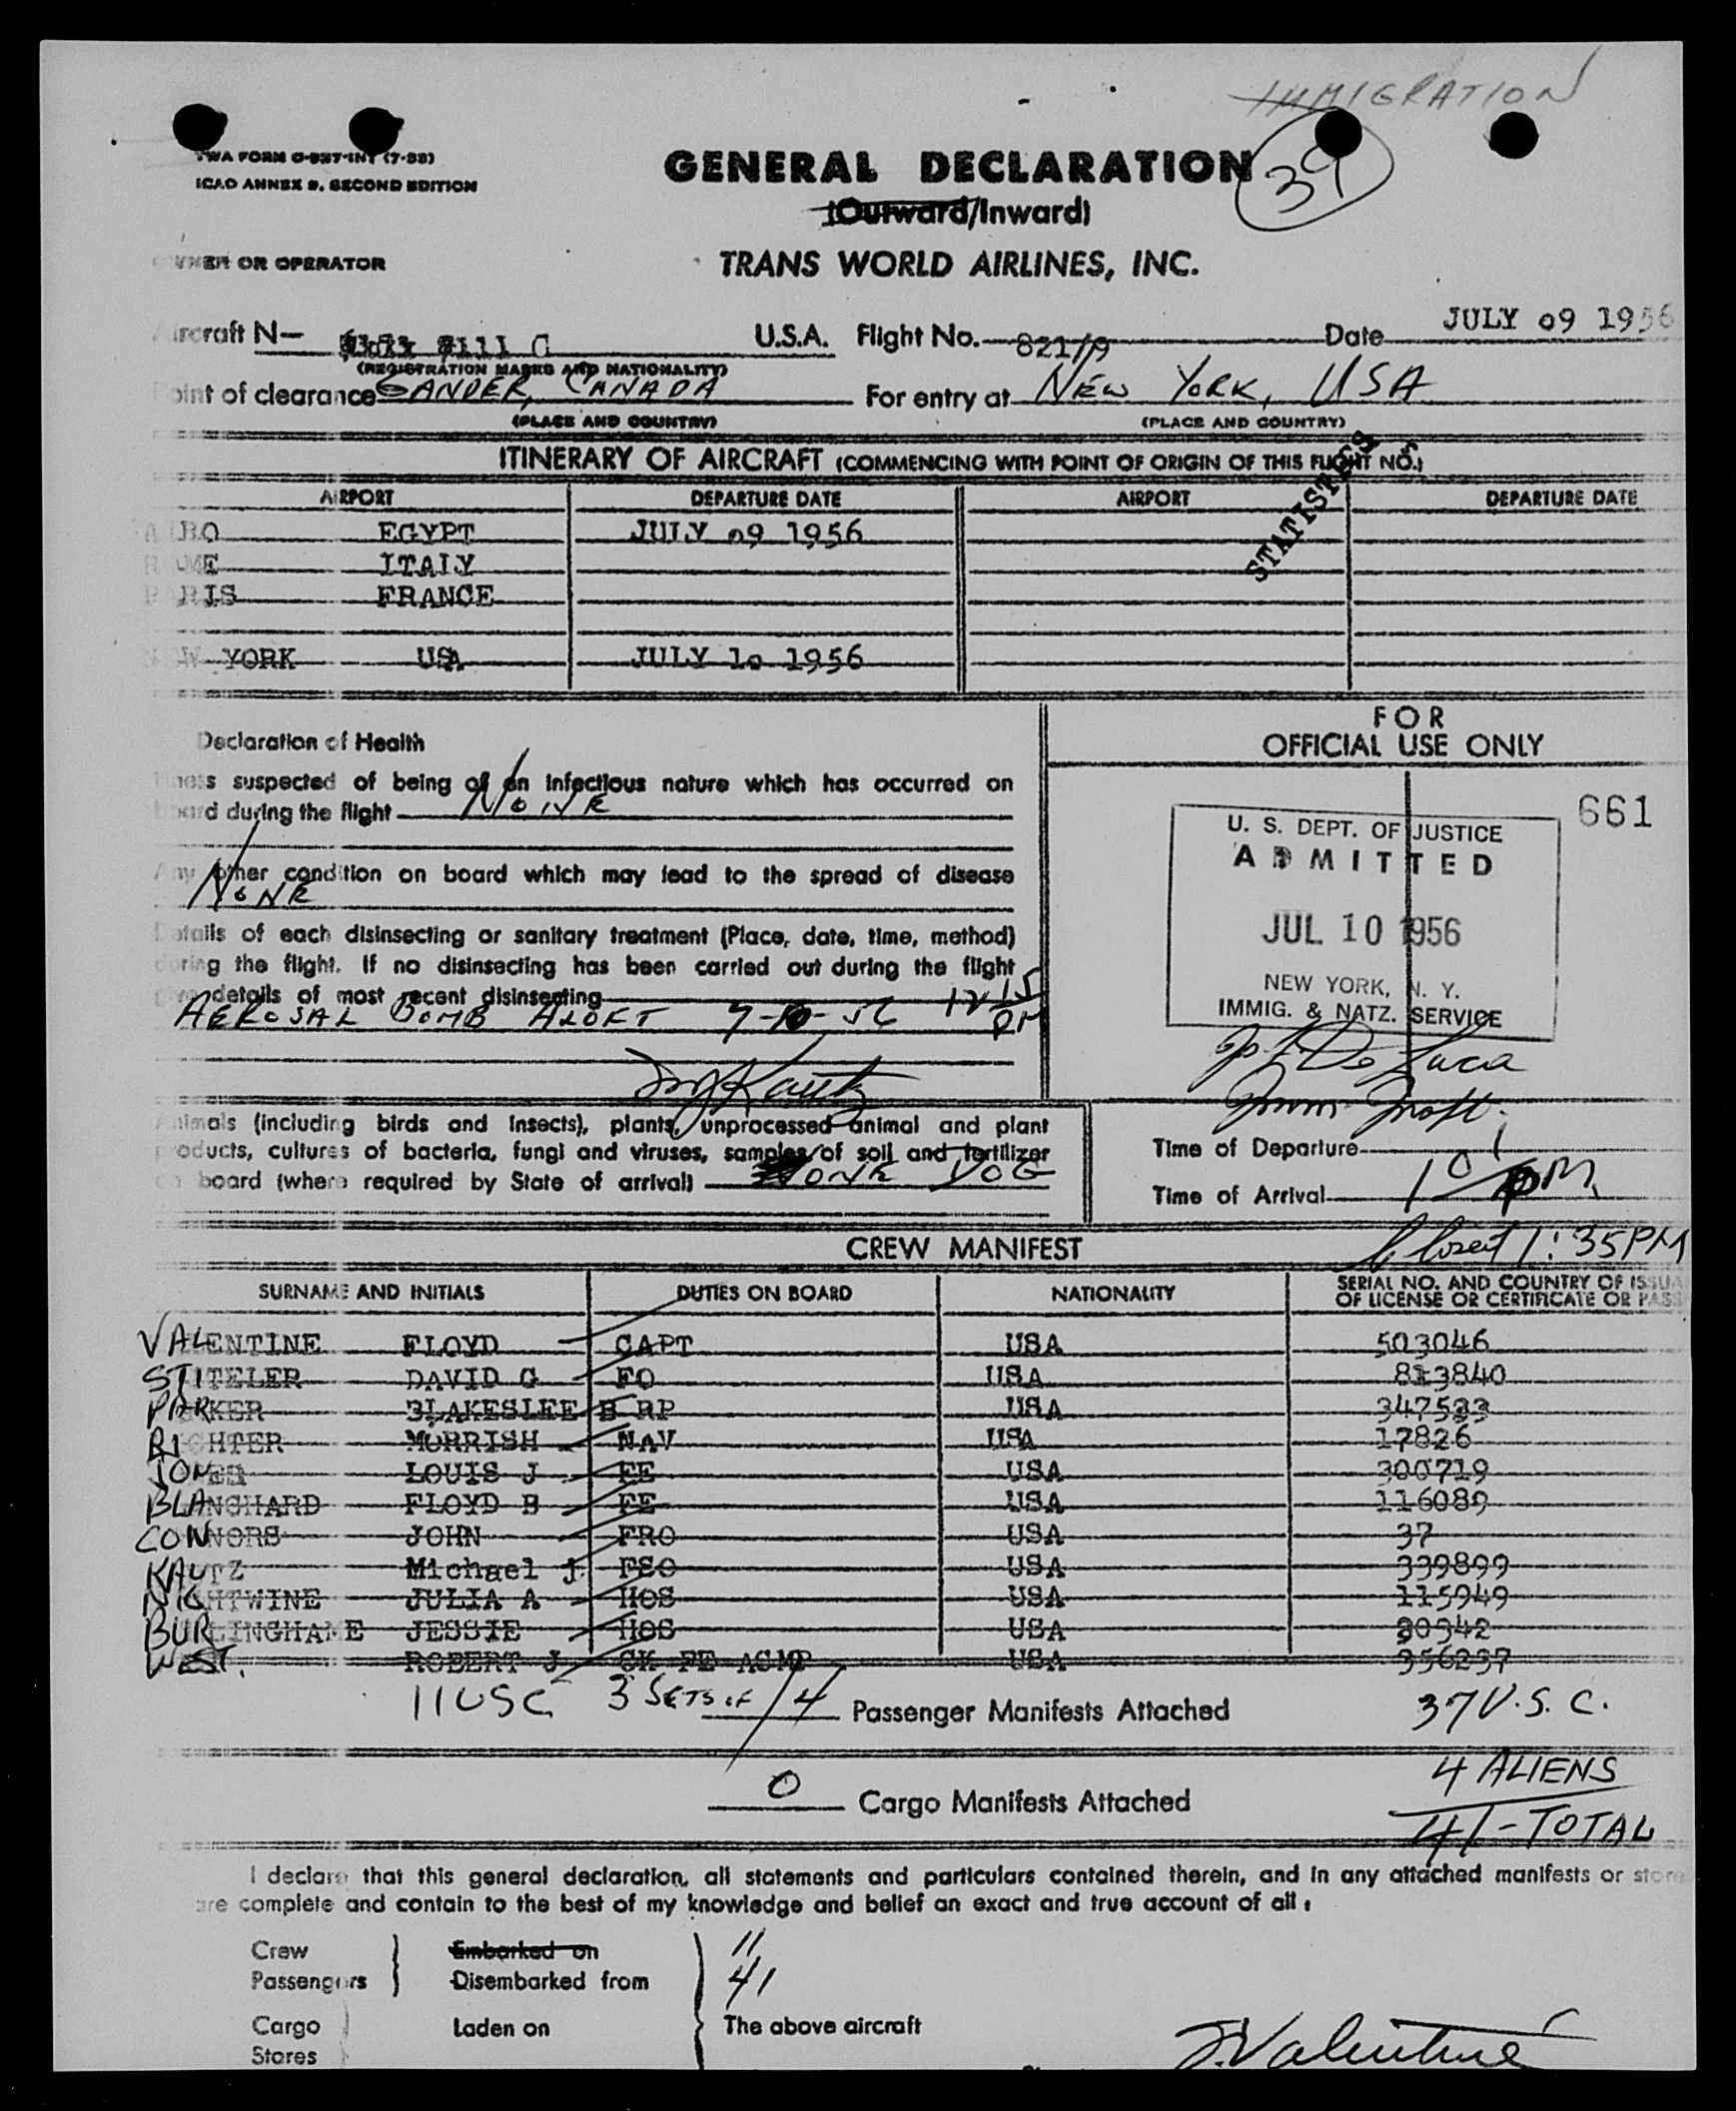 IMMIGRATION
TWA FORM O-927-INT (7-55)
ICAO ANNEX 9, SECOND EDITION
GENERAL DECLARATION
39
(Outward/Inward)
OWNER OR OPERATOR
TRANS WORLD AIRLINES, INC.
Aircraft N— 7111 C U.S.A. Flight No. 821/9 Date JULY 09 1956
(REGISTRATION MARKS AND NATIONALITY)
Point of clearance GANDER, CANADA For entry at NEW YORK, USA
(PLACE AND COUNTRY) (PLACE AND COUNTRY)
ITINERARY OF AIRCRAFT (COMMENCING WITH POINT OF ORIGIN OF THIS FLIGHT NO.)
STATISTICS
AIRPORT DEPARTURE DATE AIRPORT DEPARTURE DATE
CAIRO EGYPT JULY 09 1956
ROME ITALY
PARIS FRANCE
NEW YORK USA JULY 10 1956
Declaration of Health
Illness suspected of being of an infectious nature which has occurred on
board during the flight NONE
Any other condition on board which may lead to the spread of disease
NONE
Details of each disinsecting or sanitary treatment (Place, date, time, method)
during the flight. If no disinsecting has been carried out during the flight
give details of most recent disinsecting
AEROSAL BOMB ALOFT 7-10-56 1215 PM
MJ Kautz
FOR
OFFICIAL USE ONLY
661
U. S. DEPT. OF JUSTICE
ADMITTED
JUL 10 1956
NEW YORK, N. Y.
IMMIG. & NATZ. SERVICE
De Luca
Animals (including birds and insects), plants, unprocessed animal and plant
products, cultures of bacteria, fungi and viruses, samples of soil and fertilizer
on board (where required by State of arrival) ONE DOG
Time of Departure
Time of Arrival 1 01 PM
Closed 1:35 PM
CREW MANIFEST
SURNAME AND INITIALS DUTIES ON BOARD NATIONALITY SERIAL NO. AND COUNTRY OF ISSUA
OF LICENSE OR CERTIFICATE OR PASS
VALENTINE FLOYD CAPT USA 503046
STITELER DAVID G FO USA 813840
PARKER BLAKESLEE B RP USA 347533
RICHTER MORRISH NAV USA 17826
JONES LOUIS J FE USA 300719
BLANCHARD FLOYD B FE USA 116089
CONNORS JOHN FRO USA 37
KAUTZ Michael J FSO USA 339899
NIGHTWINE JULIA A HOS USA 115949
BURLINGHAME JESSIE HOS USA 30342
WEST. ROBERT J CK FE ACMP USA 356237
11 USC 3 SETS OF 4 Passenger Manifests Attached 37 U.S.C.
4 ALIENS
0 Cargo Manifests Attached
41-TOTAL
I declare that this general declaration, all statements and particulars contained therein, and in any attached manifests or store
are complete and contain to the best of my knowledge and belief an exact and true account of all :
Crew Embarked on 11
Passengers Disembarked from 41
Cargo Laden on The above aircraft
Stores
F. Valentine